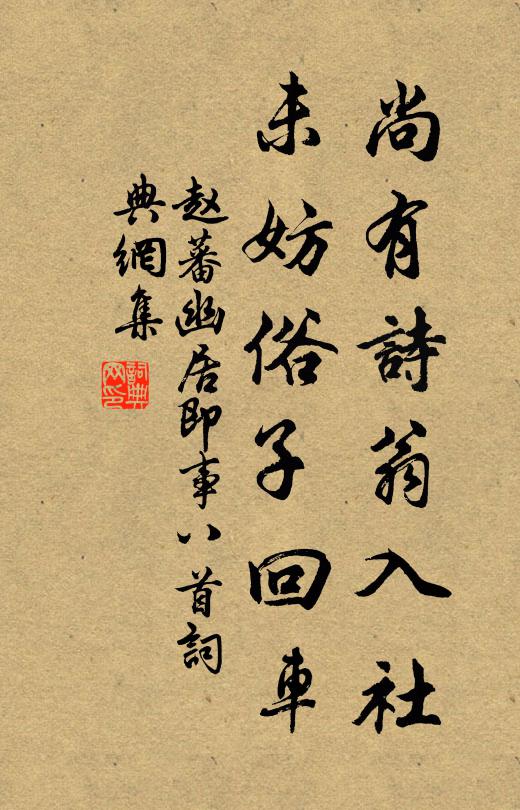 尚有詩翁入社
未妨俗子回車
赵蕃幽居即事八首詞
典網集
詞典
网印